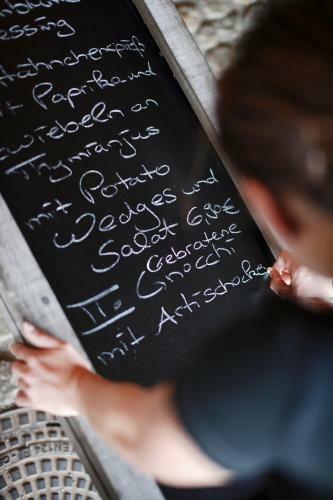 essing
ähnchenspieß
it Paprika und
wiebeln an
Thymianjus
mit Potato
Wedges und
Salat 6,90€
Gebratene
II. Gnocchi
mit Artischocke
EN124